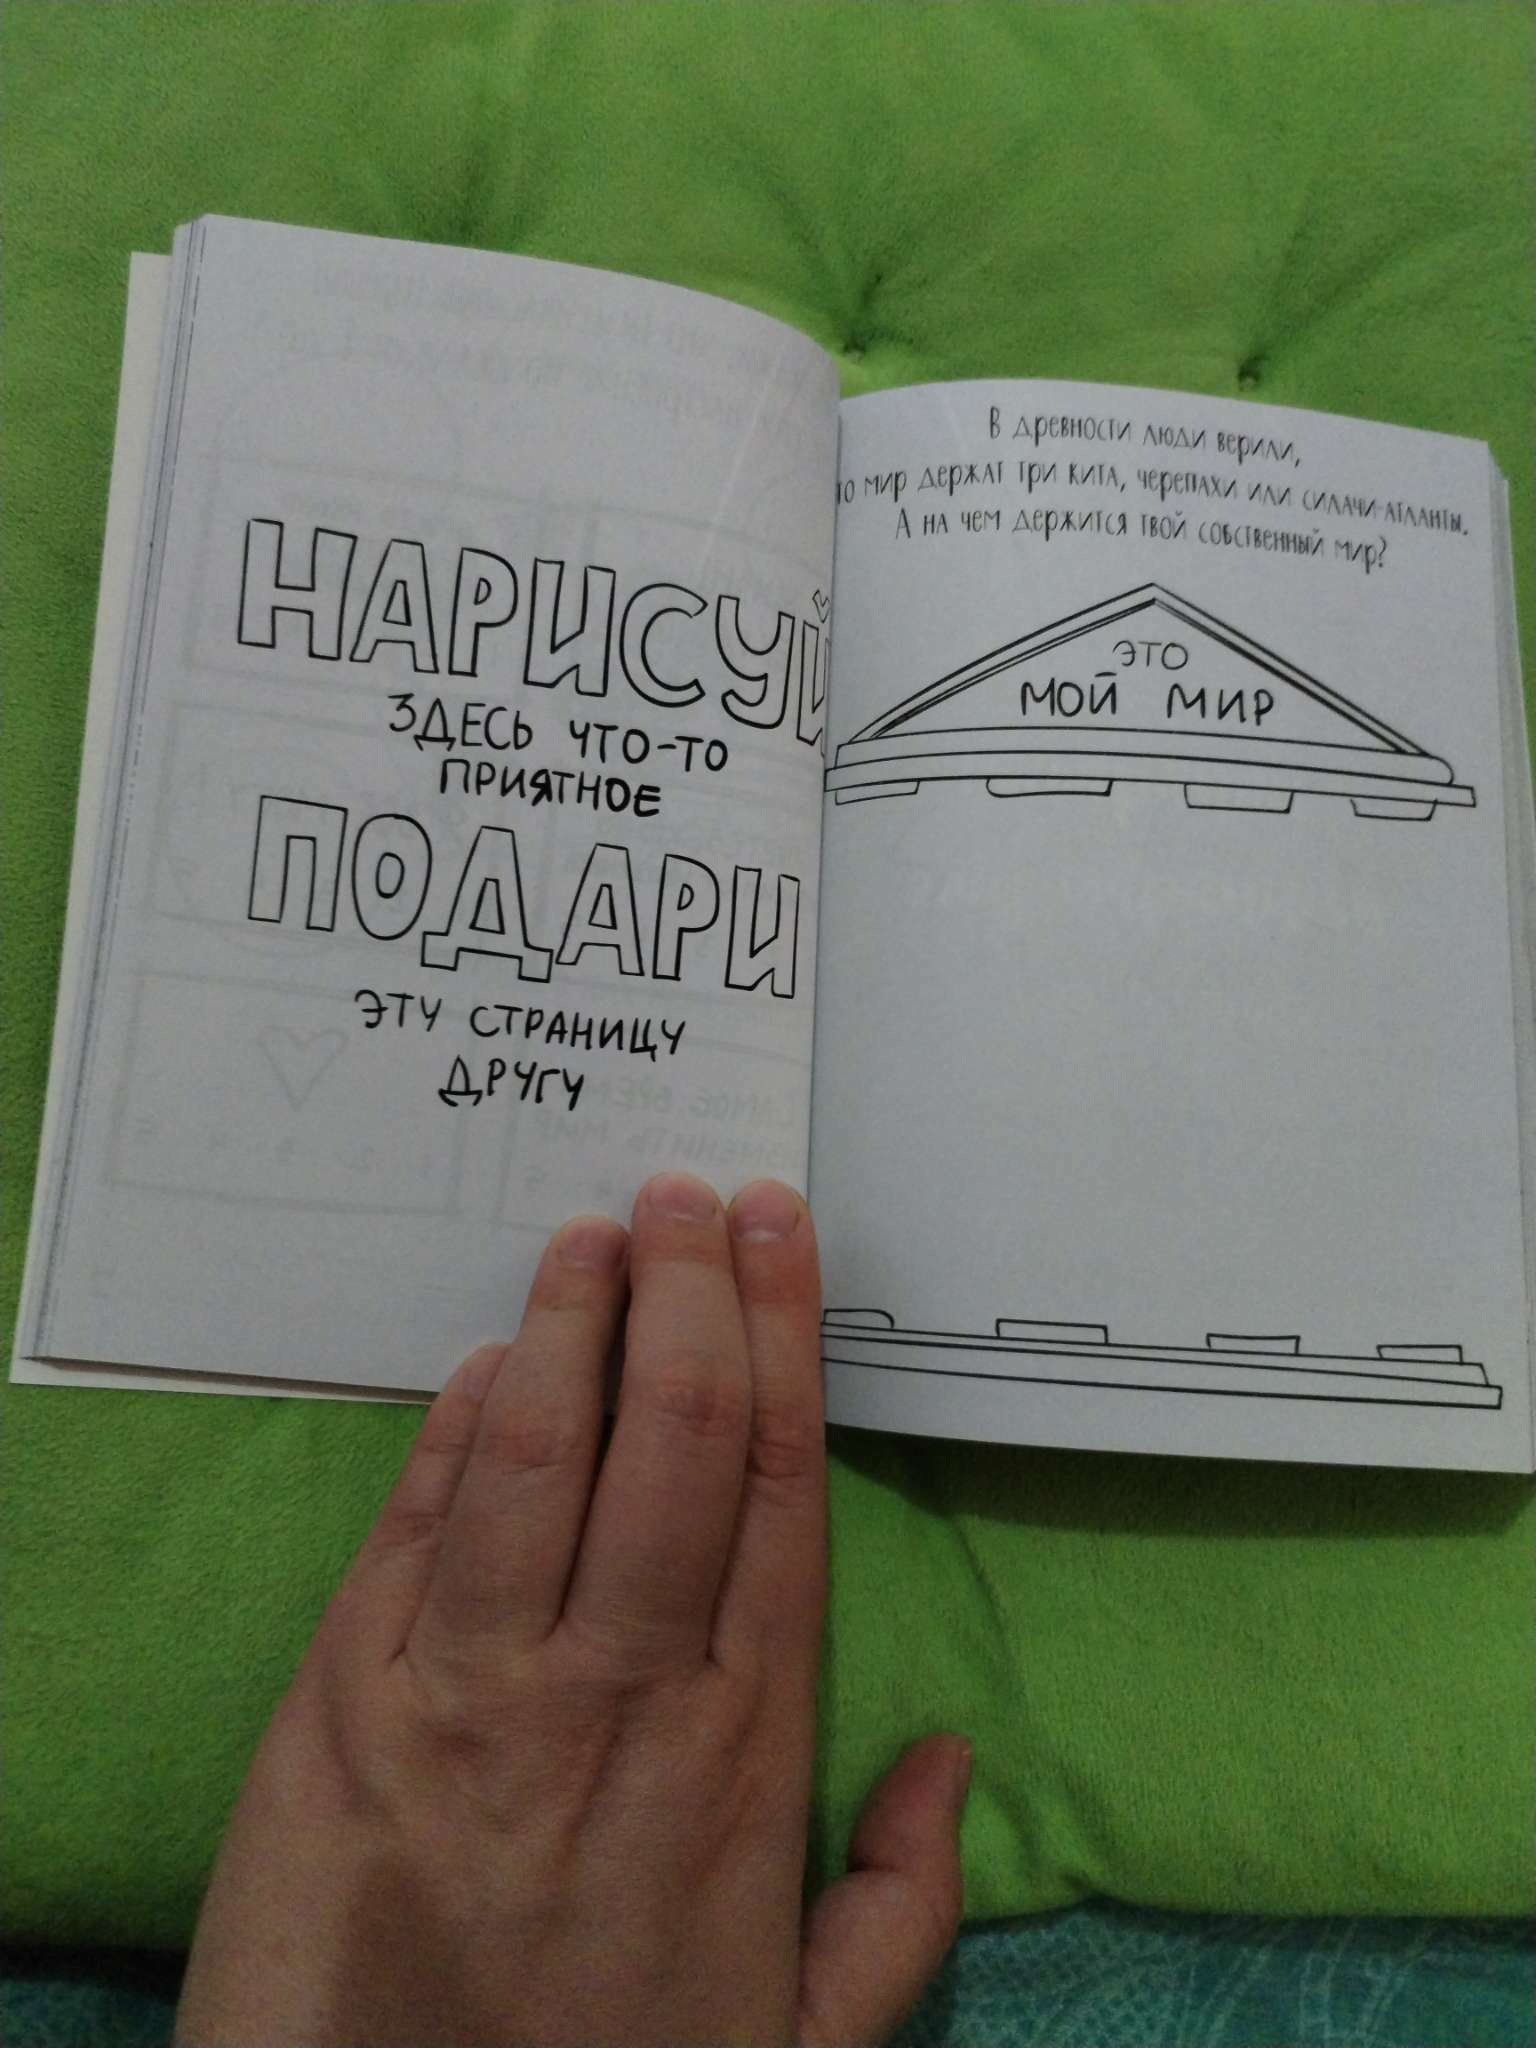 НАРИСУЙ
ЗДЕСЬ ЧТО-ТО
ПРИЯТНОЕ
ПОДАРИ
ЭТУ СТРАНИЦУ
ДРУГУ
В ДРЕВНОСТИ ЛЮДИ ВЕРИЛИ,
МИР ДЕРЖАТ ТРИ КИТА, ЧЕРЕПАХИ ИЛИ СИЛАЧИ-АТЛАНТЫ.
А НА ЧЕМ ДЕРЖИТСЯ ТВОЙ СОБСТВЕННЫЙ МИР?
ЭТО
МОЙ МИР